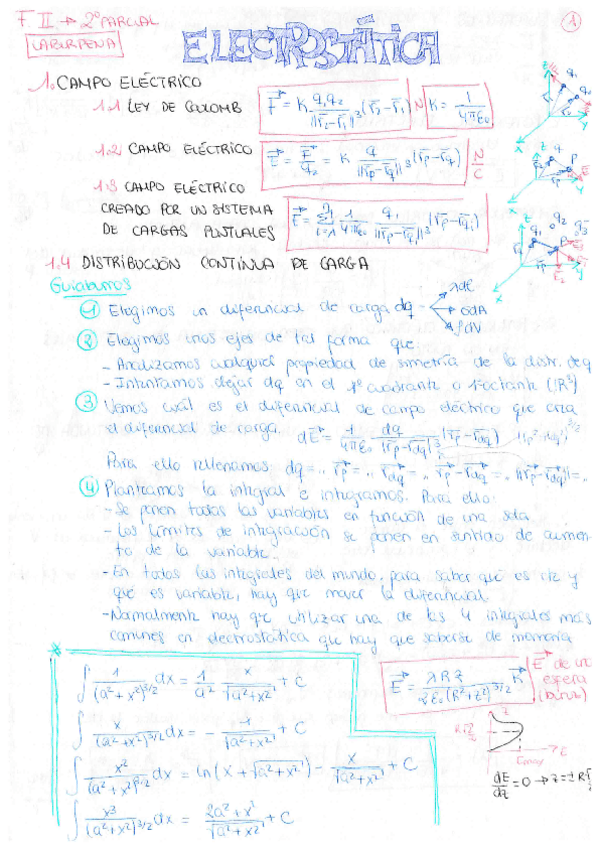 F. II → 2º PARCIAL
LABURPENA
①
ELECTROSTÁTICA
1. CAMPO ELÉCTRICO
1.1 LEY DE COULOMB F⃗ = K q₁q₂/||r⃗₂-r⃗₁||³ (r⃗₂-r⃗₁) N K = 1/4πε₀
1.2 CAMPO ELÉCTRICO E⃗ = F⃗/q₂ = K q/||r⃗p-r⃗q||³ (r⃗p-r⃗q) N/C
1.3 CAMPO ELÉCTRICO
CREADO POR UN SISTEMA
DE CARGAS PUNTUALES E⃗ = Σ 1/4πε₀ qᵢ/||r⃗p-r⃗qᵢ||³ (r⃗p-r⃗qᵢ)
1.4 DISTRIBUCIÓN CONTINUA DE CARGA
① Elegimos un diferencial de carga dq λdl
σdA
ρdV
② Elegimos unos ejes de tal forma que:
- Analizamos cualquier propiedad de simetría de la distr. de q
- Intentamos dejar dq en el 1º cuadrante o 1º octante (R³)
③ Vemos cuál es el diferencial de campo eléctrico que crea
el diferencial de carga. dE⃗ = 1/4πε₀ dq/||r⃗p-r⃗dq||³ (r⃗p-r⃗dq)
Para ello rellenamos dq=.. r⃗p=.. r⃗dq=.. r⃗p-r⃗dq=.. ||r⃗p-r⃗dq||=..
④ Planteamos la integral e integramos. Para ello:
- Se ponen todas las variables en función de una sola.
- Los límites de integración se ponen en sentido de aumen-
to de la variable.
- En todas las integrales del mundo, para saber qué es cte y
qué es variable, hay que mover la diferencial.
- Normalmente hay que utilizar una de las 4 integrales más
comunes en electrostática que hay que saberse de memoria
∫ 1/(a²+x²)^3/2 dx = 1/a² x/√(a²+x²) + C
∫ x/(a²+x²)^3/2 dx = - 1/√(a²+x²) + C
∫ x²/(a²+x²)^3/2 dx = ln(x+√(a²+x²)) - x/√(a²+x²) + C
∫ x³/(a²+x²)^3/2 dx = 2a²+x²/√(a²+x²) + C
E⃗ = λRz/2ε₀(R²+z²)^3/2 k⃗
E⃗ de una
esfera
dE/dz = 0